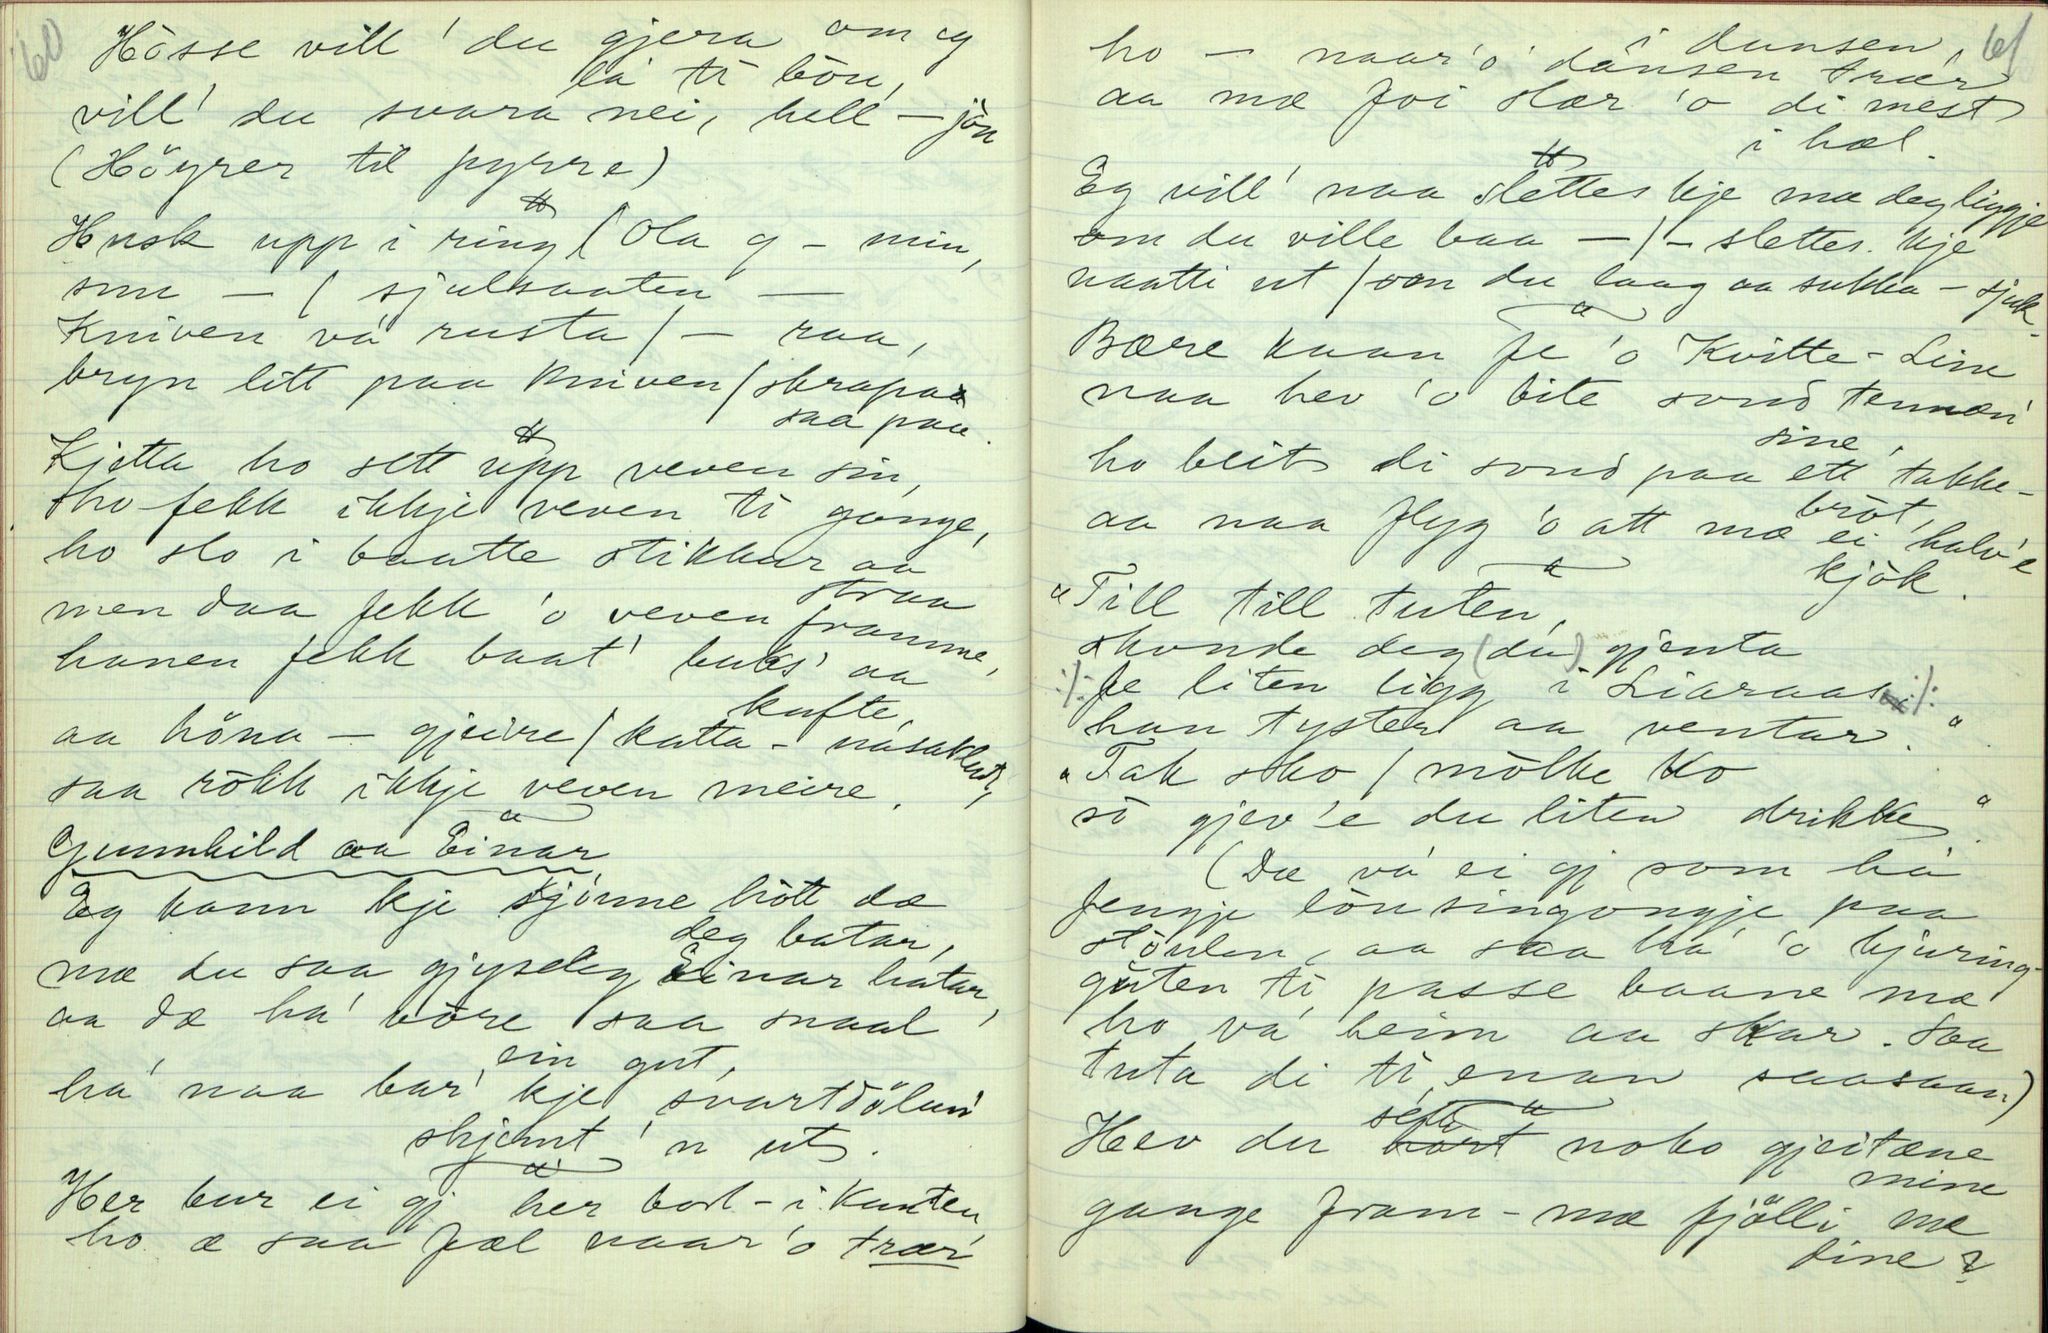 60
Hôsse vill' du gjera om eg
la ti bôn,
vill' du svara nei, hell - jôu
(Höyrer til pyrre)
Husk upp i ring / Ola g - min,
snu - / sjulsaaten -
Kniven va' rusta / - raa,
bryn litt paa kniven / skrapaa
saa paa.
Kjetta ho sett upp veven sin,
ho fekk ikkje veven ti gange,
ho slo i baatte stikkur aa
straa
men daa fekk 'o veven framme,
hanen fekk baat' buks' aa
kufte,
aa höna - gjeire / katta - nasaklut,
saa rôkk ikkje veven meire.
Gunnhild aa Einar
Eg kann kje skjönne hôtt dæ
deg batar,
mæ du saa gjyseleg Einar hatar,
aa dæ ha' vôre saa snaal
ein gut,
ha' naa bar' kje svartdölan'
skjemt 'n ut.
Her bur ei gj her bort - i Kanten
ho æ saa fæl naar 'o trær'
61
ho - naar 'o i dansen
dansen trær
aa mæ foi slær 'o di mest
i hæl.
Eg vill' naa slettes kje mæ deg liggje
om du ville baa - / - slettes kje
naatti ut / om du laag aa sukka - sjuk -
Bære kaan fe 'o Kvitte - Linu
naa hev 'o bite sond tennan'
sine,
ho beit di sond paa ett takke-
brôt,
aa naa flyg 'o att mæ ei halv'e
kjôk.
"Till till tuten,
skunde deg (du) gjenta
:/: Fe liten ligg i Liaraas :/:
han tyster aa ventar."
"Tak sko / môlke Ko
sô gjev 'e du liten drikke".
(Dæ va' ei gj som ha'
fengje lôusingongje paa
stöulen, aa saa ha' 'o hjuring-
guten ti passe baane mæ
ho va' heim aa skar. Saa
tuta di ti enan saasaan)
Hev du sett noko gjeitæne
mine
gange fram - mæ fjölli mæ
dine?